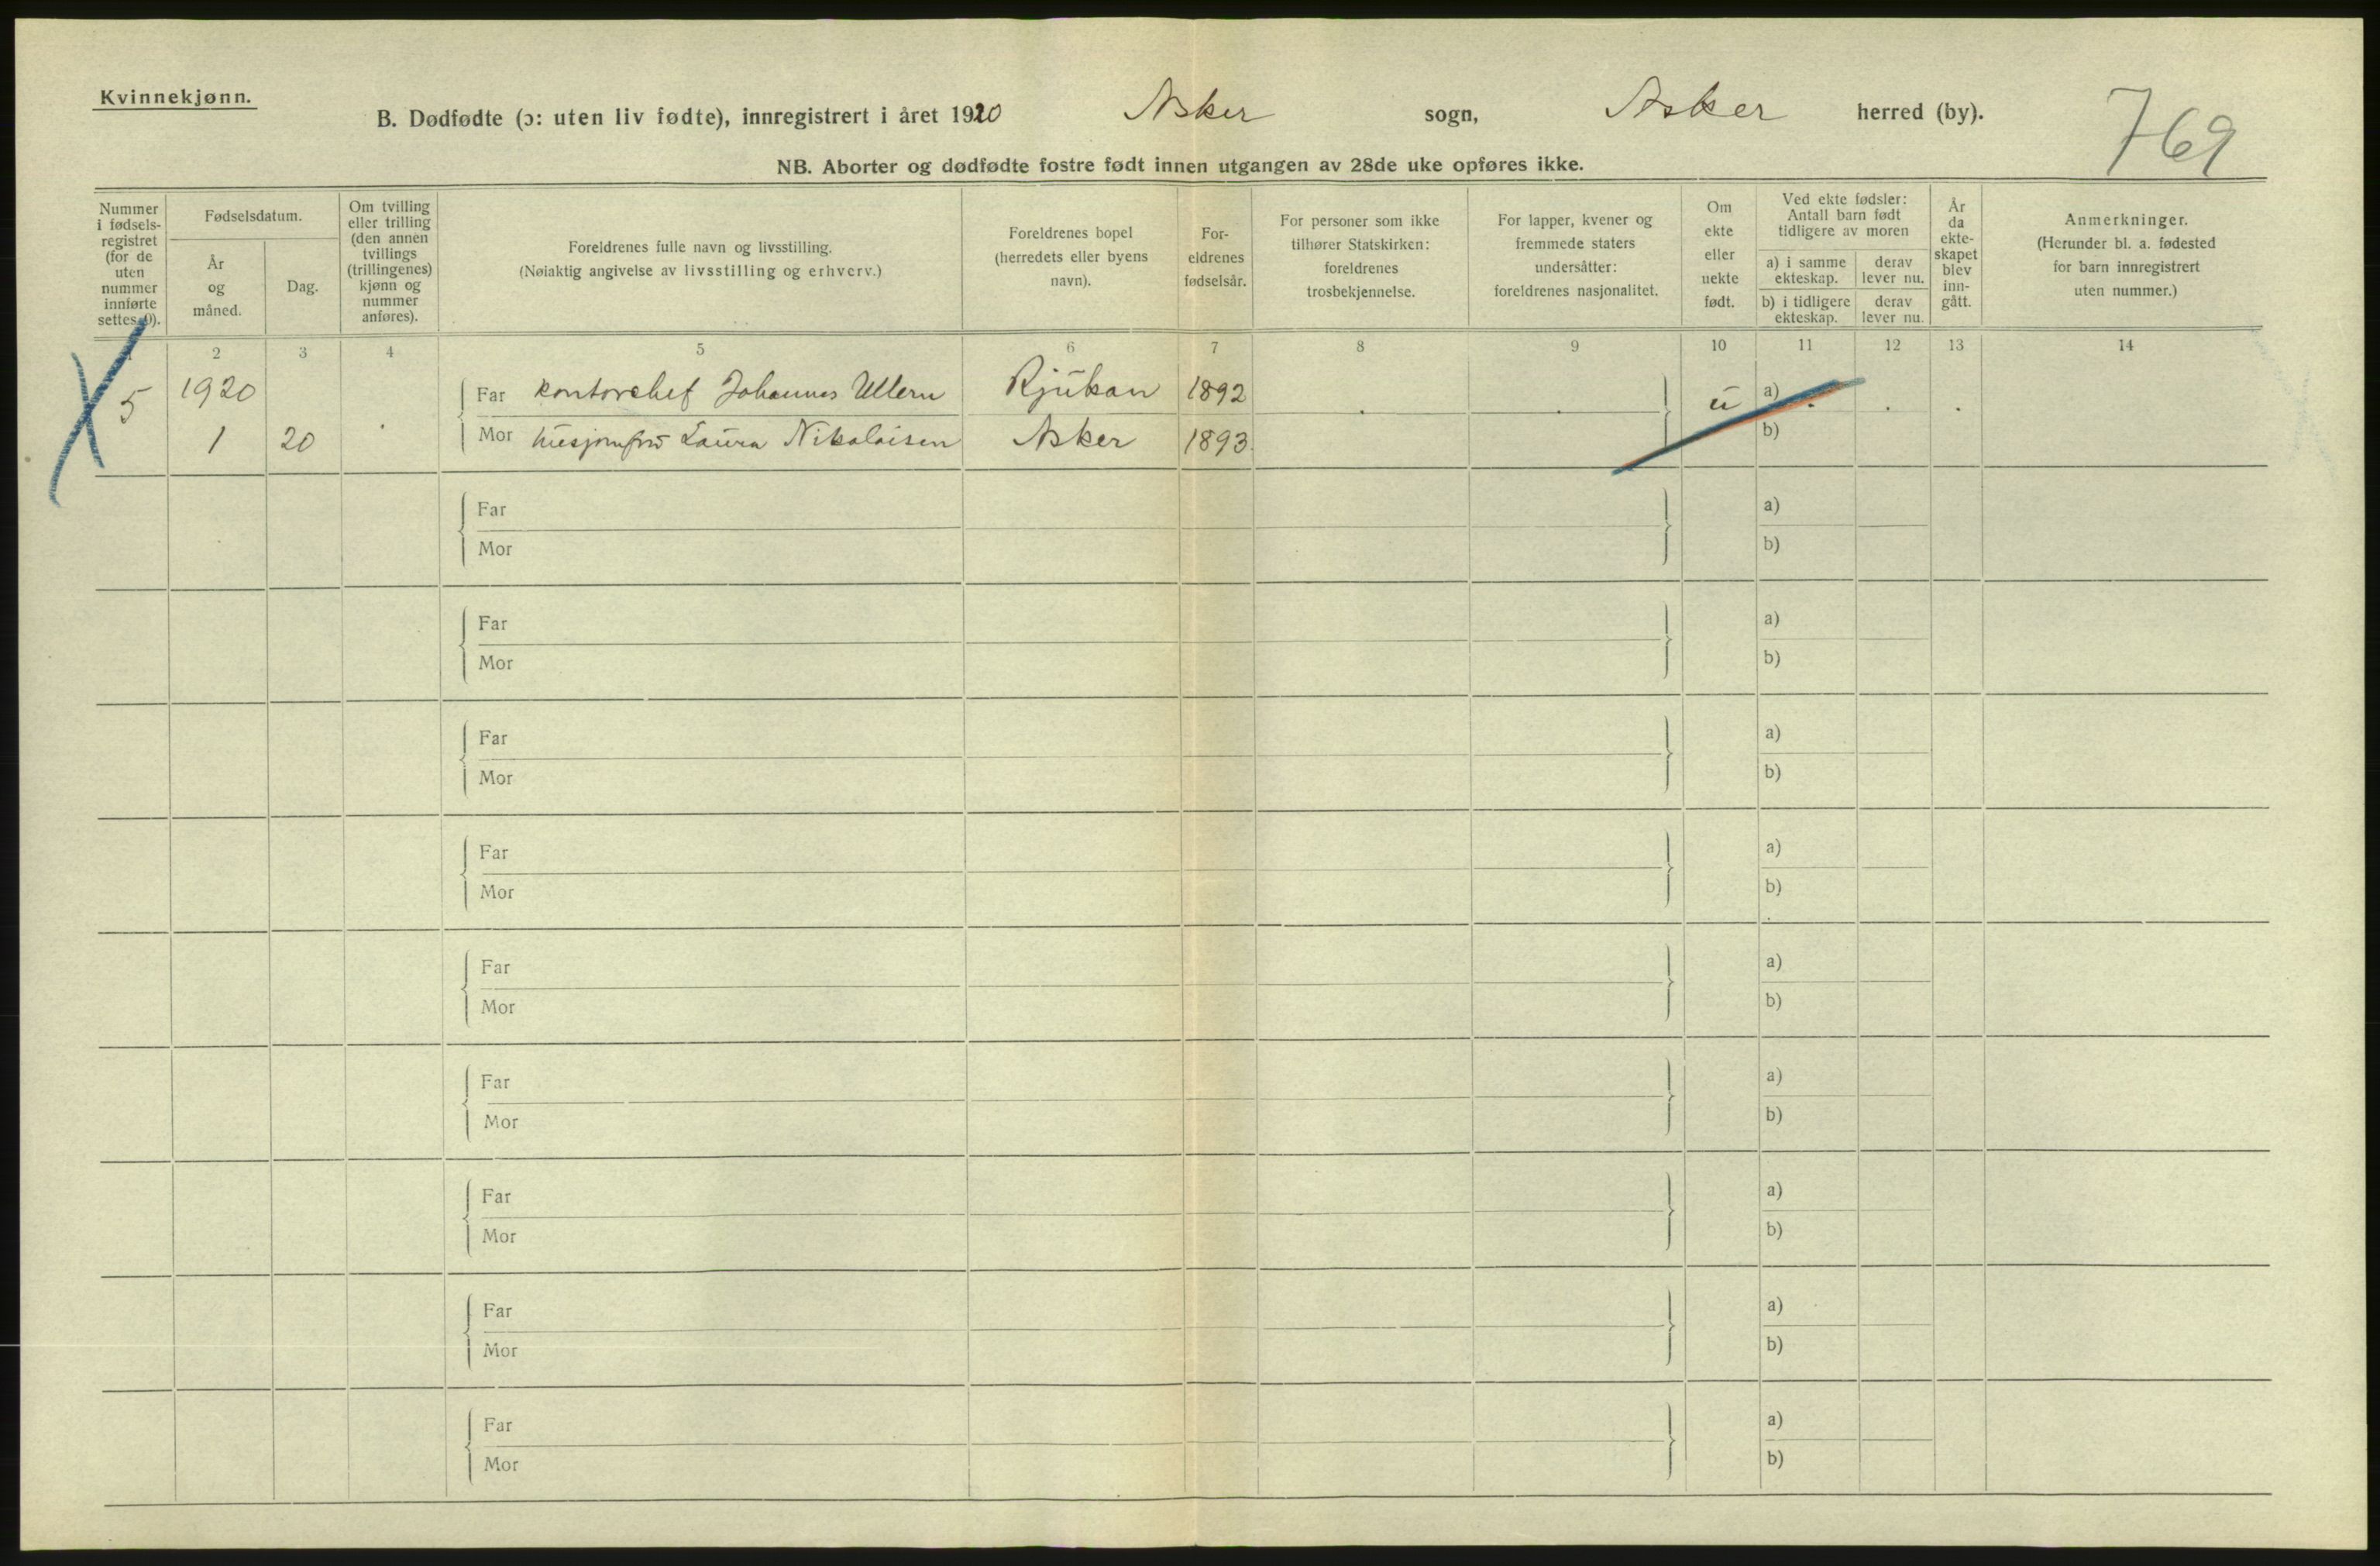 Kvinnekjønn.
B. Dødfødte (ɔ: uten liv fødte), innregistrert i året 1920 Asker sogn, Asker herred (by).
769
NB. Aborter og dødfødte fostre født innen utgangen av 28de uke opføres ikke.
Nummer i fødsels-registret (for de uten nummer innførte settes 0).
Fødselsdatum.
År og måned.
Dag.
Om tvilling eller trilling (den annen tvillings (trillingenes) kjønn og nummer anføres).
Foreldrenes fulle navn og livsstilling.
(Nøiaktig angivelse av livsstilling og erhverv.)
Foreldrenes bopel (herredets eller byens navn).
For-eldrenes fødselsår.
For personer som ikke tilhører Statskirken: foreldrenes trosbekjennelse.
For lapper, kvener og fremmede staters undersåtter: foreldrenes nasjonalitet.
Om ekte eller uekte født.
Ved ekte fødsler: Antall barn født tidligere av moren
a) i samme ekteskap.
derav lever nu.
b) i tidligere ekteskap.
derav lever nu.
År da ekte-skapet blev inn-gått.
Anmerkninger.
(Herunder bl. a. fødested for barn innregistrert uten nummer.)
1 2 3 4 5 6 7 8 9 10 11 12 13 14
5 1920 Far Kontorchef Johannes Ullern Rjukan 1892 u a)
1 20 Mor husjomfru Laura Nikolaisen Asker 1893 b)
Far a)
Mor b)
Far a)
Mor b)
Far a)
Mor b)
Far a)
Mor b)
Far a)
Mor b)
Far a)
Mor b)
Far a)
Mor b)
Far a)
Mor b)
Far a)
Mor b)